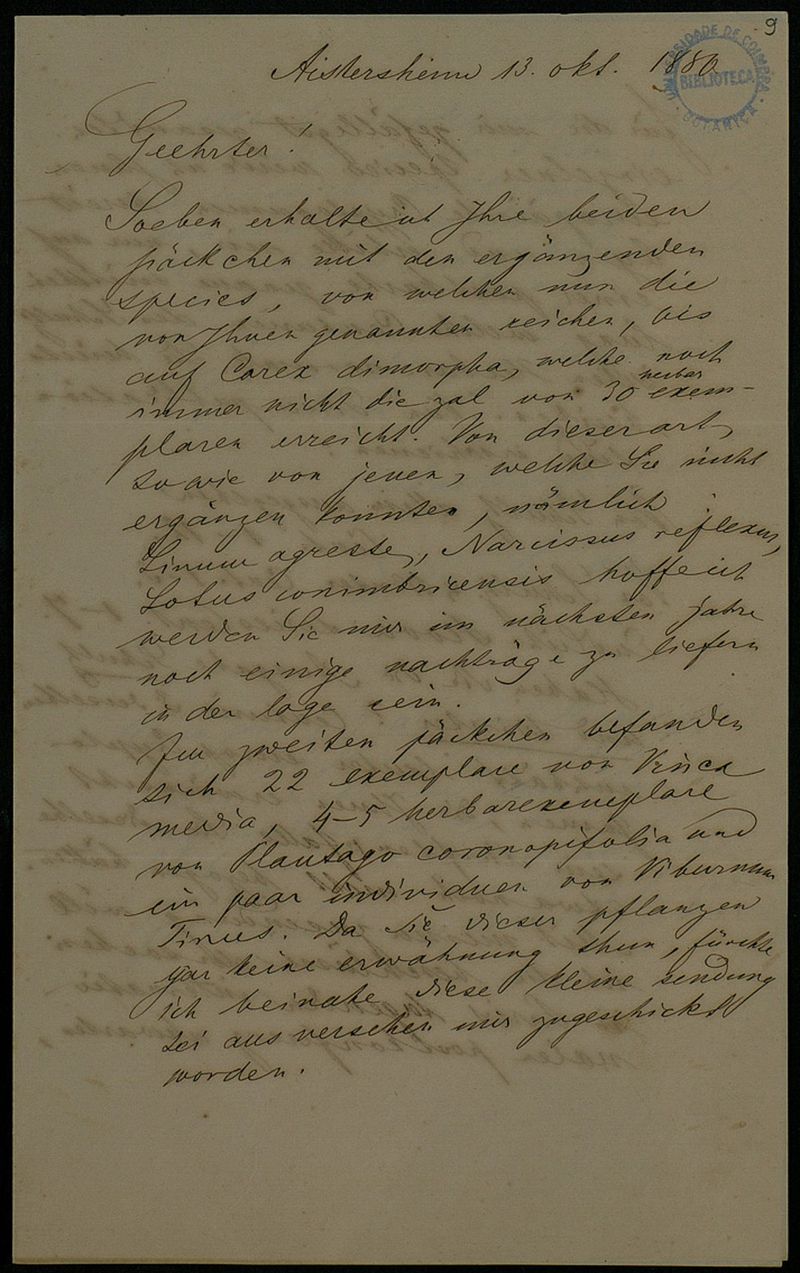 9
UNIVERSIDADE DE COIMBRA
BIBLIOTECA
BOTANICA
Aistersheim 13. okt. 1880.
Geehrter!
Soeben erhalte ich Ihre beiden
päckchen mit den ergänzenden
species, von welchen nun die
von Ihnen genannten reichen, bis
auf Carex dimorpha, welche noch
immer nicht die zal von 30 herbar
exem-
plaren erreicht. Von dieser art,
sowie von jenen, welche Sie nicht
ergänzen konnten, nämlich
Linum agreste, Narcissus reflexus,
Lotus conimbricensis hoffe ich
werden Sie mir im nächsten jahre
noch einige nachträge zu liefern
in der lage sein.
Im zweiten päckchen befanden
sich 22 exemplare von Vinca
media, 4–5 herbarexemplare
von Plantago coronopifolia und
ein paar individuen von Viburnum
Tinus. Da Sie dieser pflanzen
gar keine erwähnung thun, fürchte
ich beinahe diese kleine sendung
sei aus versehen mir zugeschickt
worden.